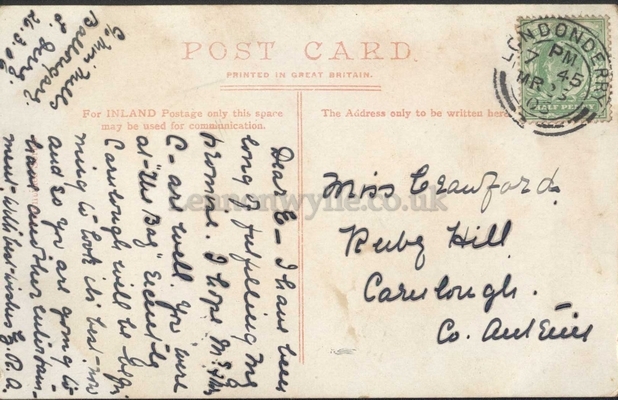 POST CARD.
PRINTED IN GREAT BRITAIN.
For INLAND Postage only this space
may be used for communication.
The Address only to be written here
LONDONDERRY
7 45 PM
MR
HALF PENNY
Lennonwylie.co.uk
Miss Crawford.
Ruby Hill
Carnlough.
Co. Antrim
26.3.
Dear E— I have been
long of fulfilling my
promise. I hope
C— are well. You were
at "The Bay" Evidently
Carnlough will be begin
ning to look its best now
and so you are going to
have another entertain-
ment. With best wishes E.R.A.